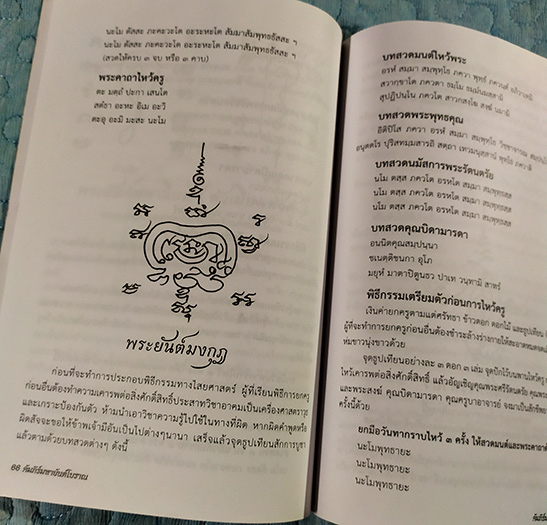 นะโม ตัสสะ ภะคะวะโต อะระหะโต สัมมาสัมพุทธัสสะ ฯ
นะโม ตัสสะ ภะคะวะโต อะระหะโต สัมมาสัมพุทธัสสะ ฯ
(สวดให้ครบ ๓ จบ หรือ ๓ คาบ)
พระคาถาไหว้ครู
ตะ มตฺถํ ปะกา เสนโต
สตฺธา อะหะ อิเม อะวิ
ตะอุ อะมิ มะสะ นะโม
พระยันต์มงกุฎ
ก่อนที่จะทำการประกอบพิธีกรรมทางไสยศาสตร์ ผู้ที่เรียนพิธีการยกครู
ก่อนอื่นต้องทำความเคารพต่อสิ่งศักดิ์สิทธิ์ประสาทวิชาอาคมเป็นเครื่องศาสตราวุธ
และเกราะป้องกันตัว ห้ามนำเอาวิชาความรู้ไปใช้ในทางที่ผิด หากผิดคำพูดหรือ
ผิดสัจจะขอให้ข้าพเจ้ามีอันเป็นไปต่างๆนานา เสร็จแล้วจุดธูปเทียนสักการบูชา
แล้วตามด้วยบทสวดต่างๆ ดังนี้
66 คัมภีร์มหายันต์โบราณ
บทสวดมนต์ไหว้พระ
อรหํ สมฺมา สมฺพุทฺโธ ภควา พุทฺธํ ภควนฺตํ อภิวาเทมิ
สวากฺขาโต ภควตา ธมฺโม ธมฺมํนมสฺสามิ
สุปฏิปนฺโน ภควโต สาวกสงฺโฆ สงฺฆํ นมามิ
บทสวดพระพุทธคุณ
อิติปิโส ภควา อรหํ สมฺมา สมฺพุทฺโธ วิชฺชาจรณ
อนุตตโร ปุริสทมฺมสารถิ สตฺถา เทวมนุสฺสานํ พุทฺโธ ภควาติ
บทสวดนมัสการพระรัตนตรัย
นโม ตสฺส ภควโต อรหโต สมฺมา สมฺพุทฺธสฺส
นโม ตสฺส ภควโต อรหโต สมฺมา สมฺพุทฺธสฺส
นโม ตสฺส ภควโต อรหโต สมฺมา สมฺพุทฺธสฺส
บทสวดคุณบิดามารดา
อนนิตคุณสมฺปนฺนา
ชเนตฺติชนกา อุโภ
มยฺหํ มาตาปิตูนธว ปาเท วนฺทามิ สาทรํ
พิธีกรรมเตรียมตัวก่อนการไหว้ครู
เงินค่ายกครูตามแต่ศรัทธา ข้าวตอก ดอกไม้ และธูปเทียน
ผู้ที่จะทำการยกครูก่อนอื่นต้องชำระล้างร่างกายให้สะอาด
ห่มขาวนุ่งขาวด้วย
จุดธูปเทียนอย่างละ ๓ ดอก ๓ เล่ม จุดปักไว้บนพานไหว้ครู
ไหว้เคารพต่อสิ่งศักดิ์สิทธิ์ แล้วอัญเชิญคุณพระศรีรัตนตรัย คุณพระ
และพระสงฆ์ คุณบิดามารดา คุณครูบาอาจารย์ จงมาเป็นสักขีพยาน
ครั้งนี้ด้วย
ยกมือวันทากราบไหว้ ๓ ครั้ง ให้สวดมนต์และพระคาถา
นะโมพุทธายะ
นะโมพุทธายะ
นะโมพุทธายะ